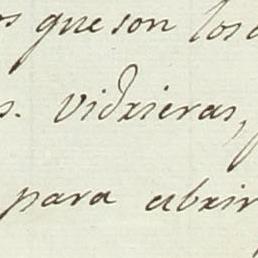 os que son los
s. vidrieras,
para abrir